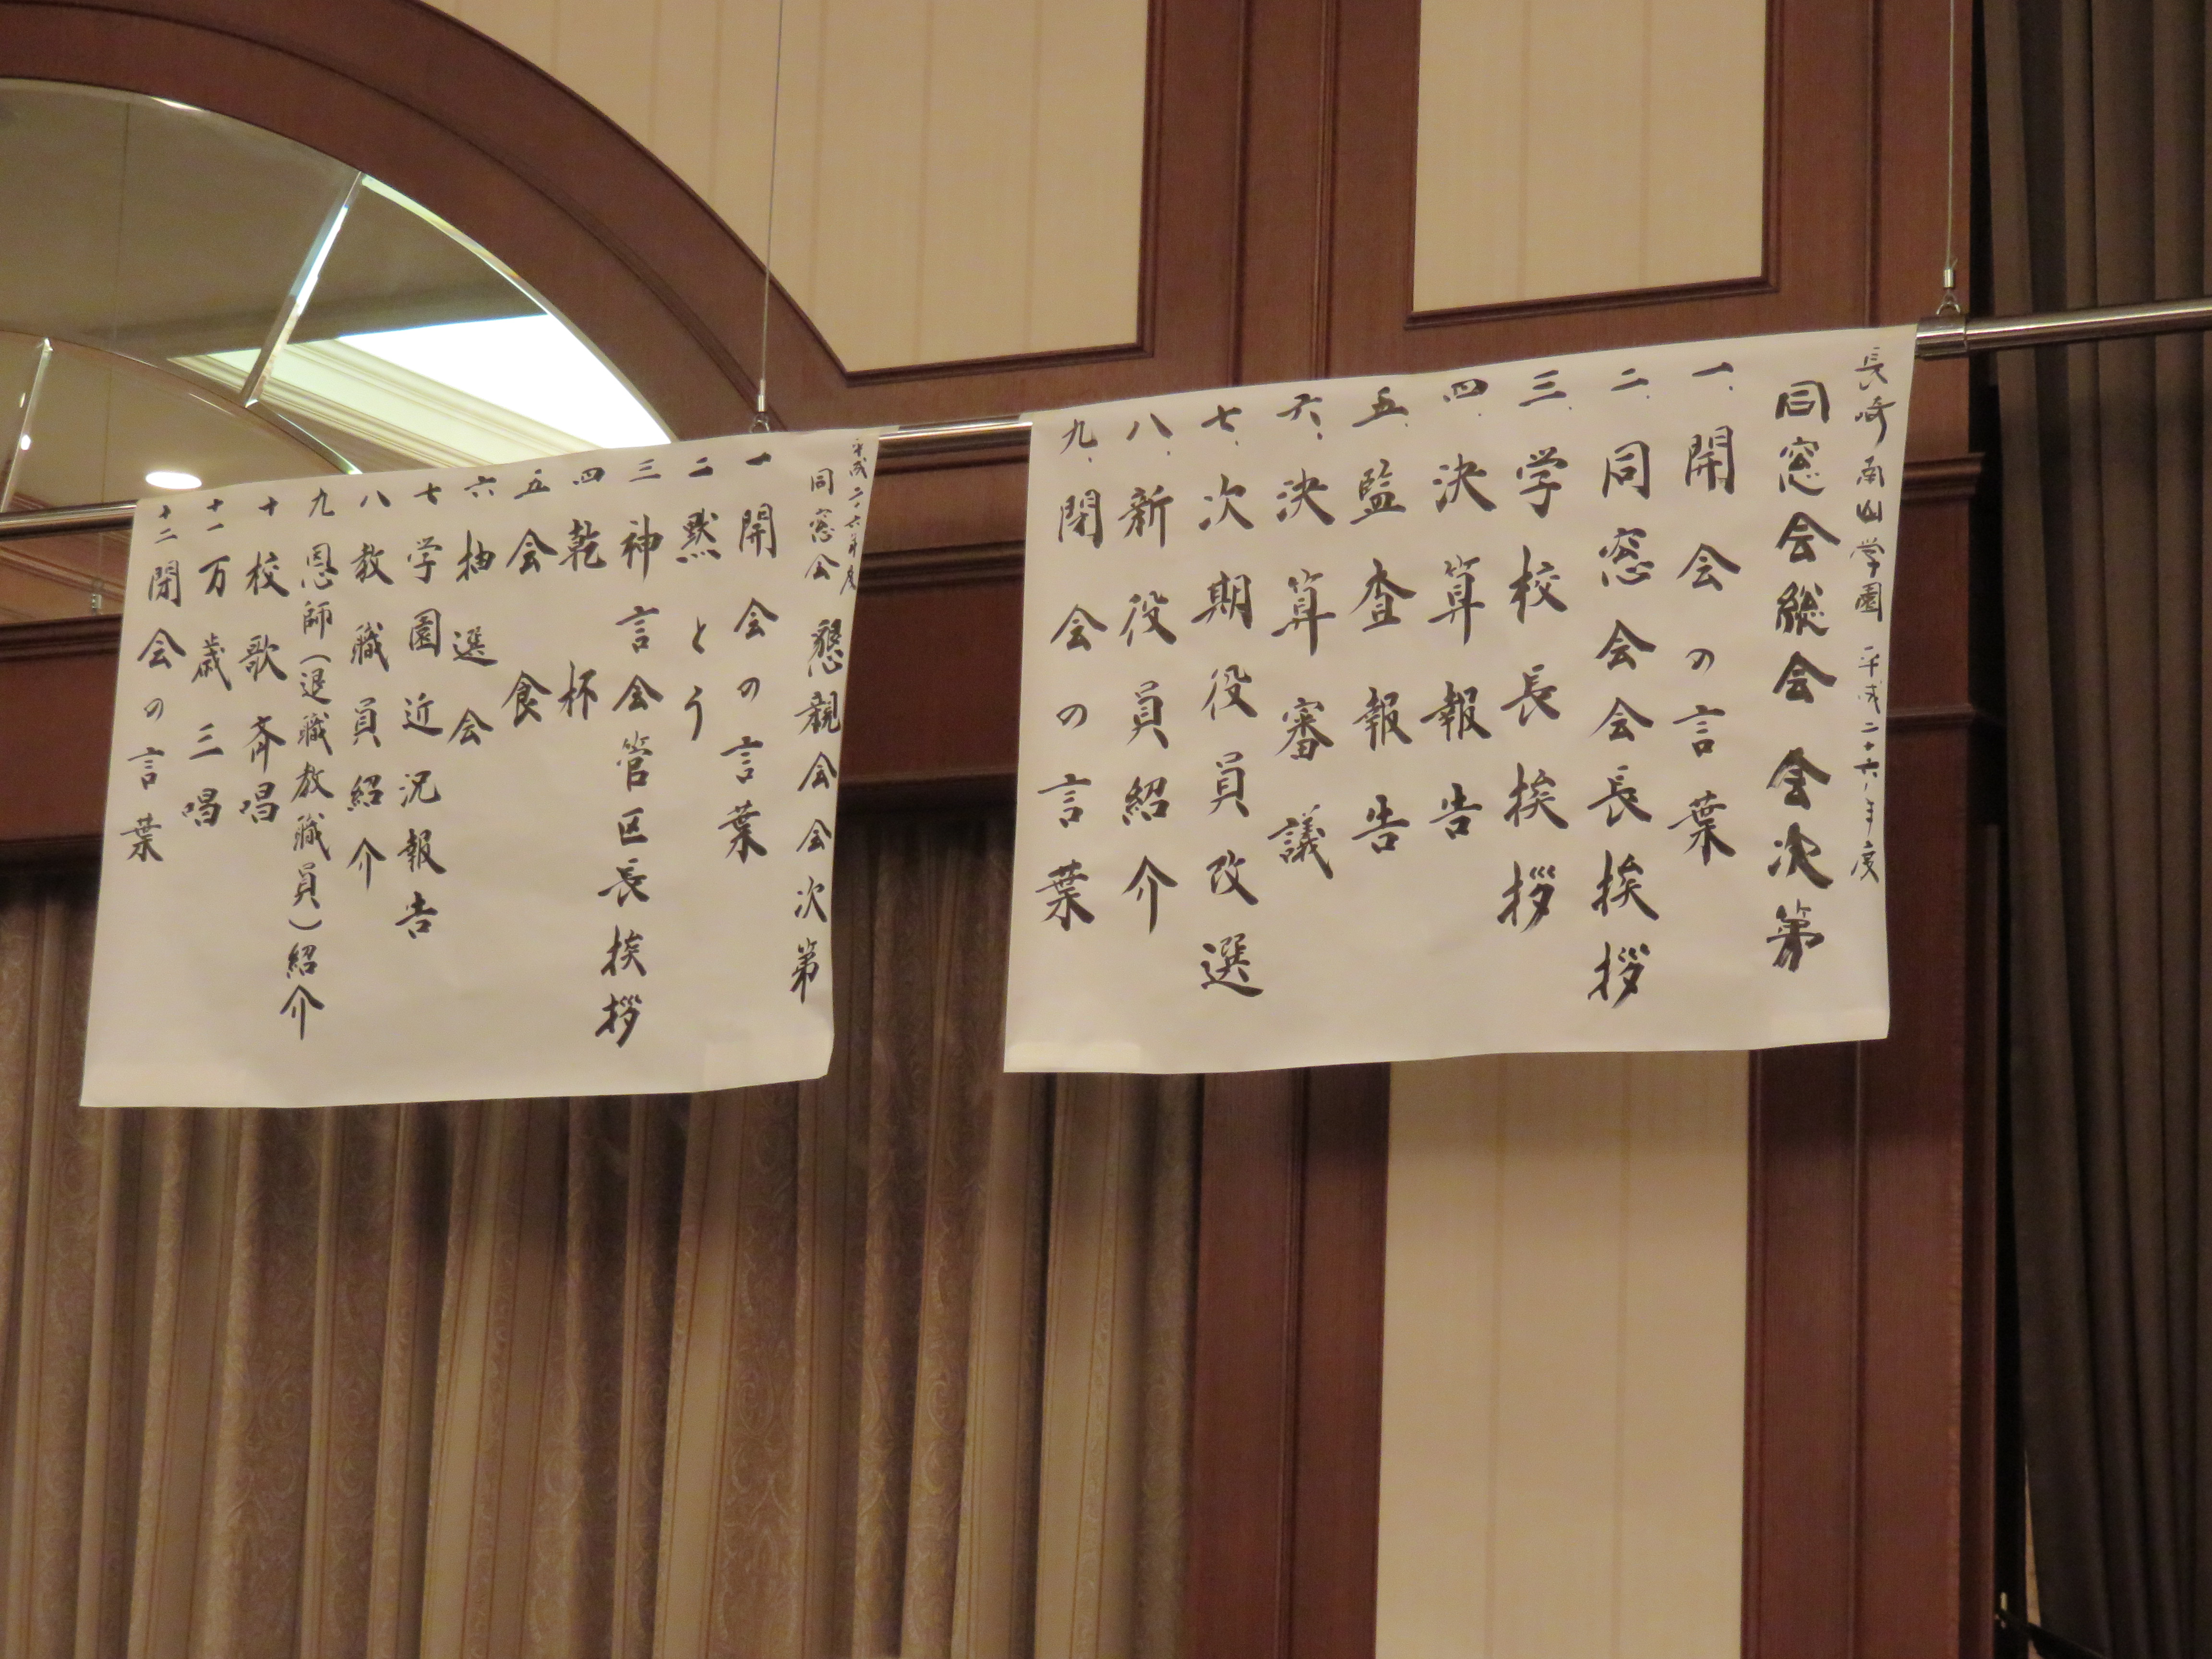 長崎南山学園 平成二十六年度
同窓会総会 会次第
一、開会の言葉
二、同窓会会長挨拶
三、学校長挨拶
四、決算報告
五、監査報告
六、決算審議
七、次期役員改選
八、新役員紹介
九、閉会の言葉
平成二十六年度
同窓会 懇親会会次第
一 開会の言葉
二 黙とう
三 神言会管区長挨拶
四 乾杯
五 会食
六 抽選会
七 学園近況報告
八 教職員紹介
九 恩師(退職教職員)紹介
十 校歌斉唱
十一 万歳三唱
十二 閉会の言葉